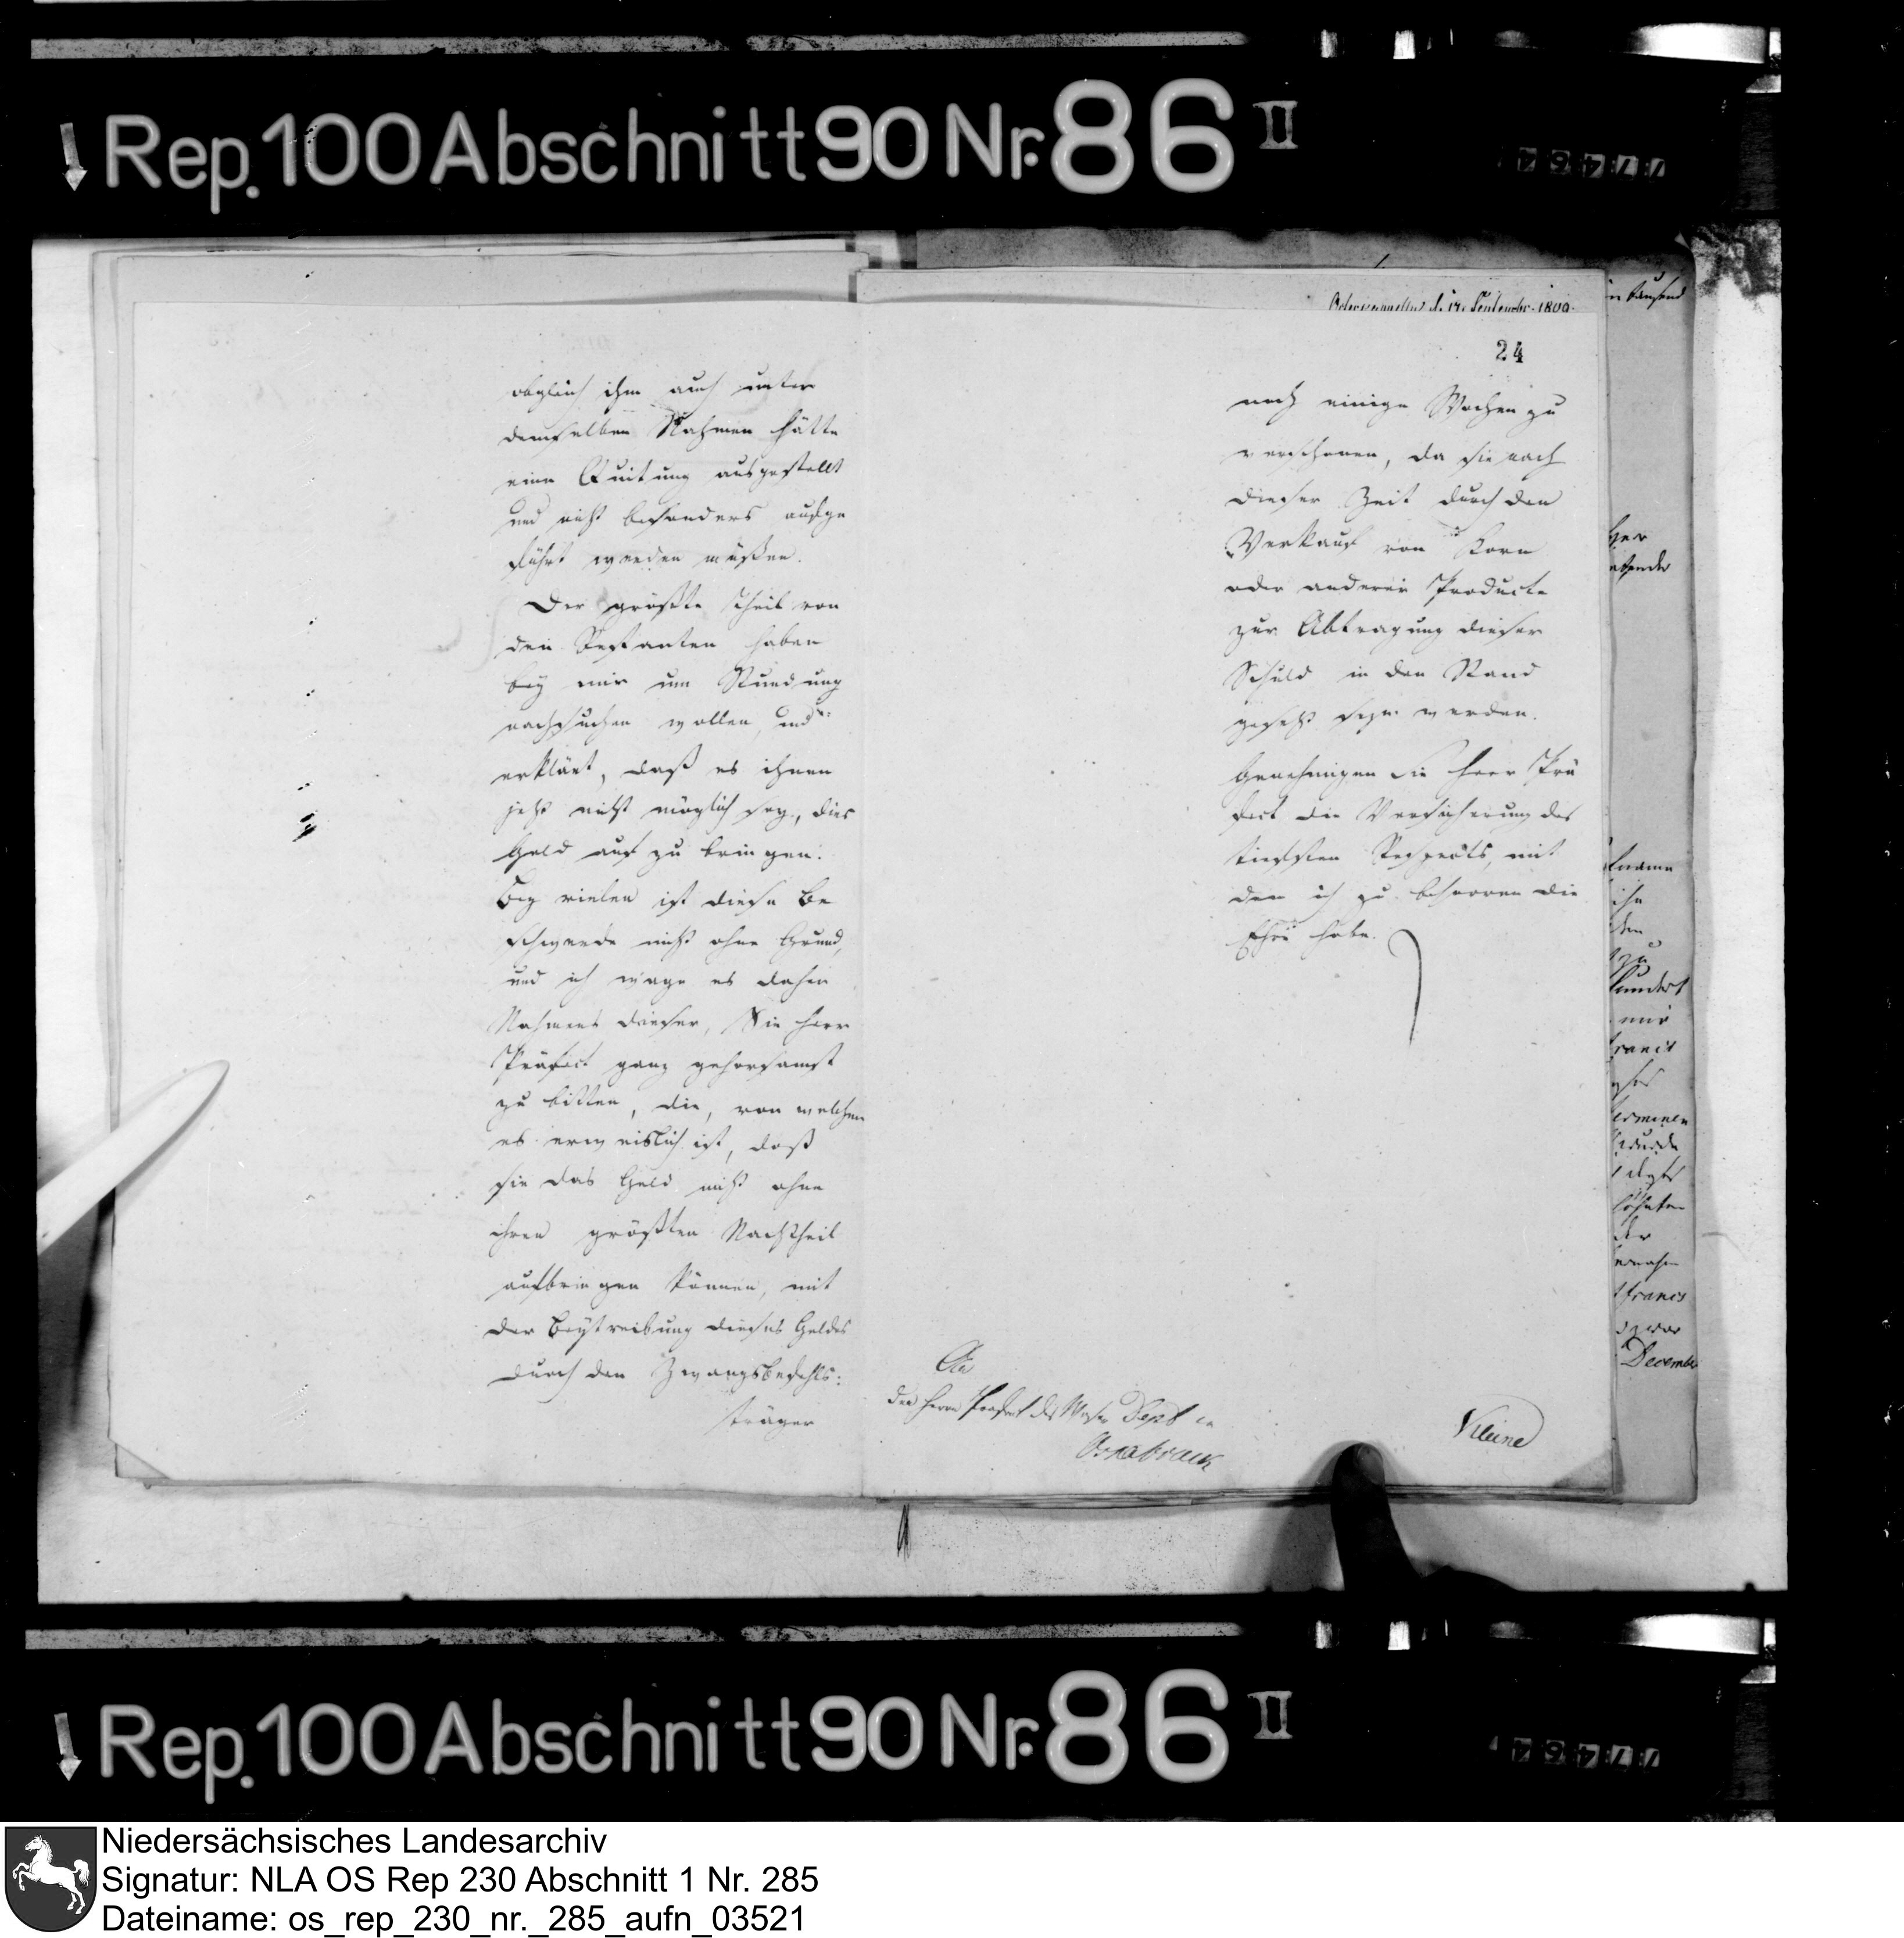 Rep. 100 Abschnitt 90 Nr. 86 II
77464
obgleich ihm auch unter
demselben Nahmen hätte
eine Quitung ausgestellt
und nicht besonders aufge
führt werden müßen.
Der größte Theil von
den Restanten haben
bey mir um Stundung
nachsuchen wollen, und
erklärt, daß es ihnen
jetzt nicht möglich sey, dies
Geld auf zu bringen.
Bey vielen ist diese Be
schwerde nicht ohne Grund,
und ich wage es daher
Nahmens dieser, Sie Herr
Präfect ganz gehorsamst
zu bitten, die, von welchen
es erweislich ist, daß
sie das Geld nicht ohne
ihren größten Nachtheil
aufbringen können, mit
der Beytreibung dieses Geldes
durch den Zwangsbefehls:
träger
17. Septembr. 1809.
24
noch einige Wochen zu
verschonen, da sie nach
dieser Zeit durch den
Verkauf von Korn
oder anderer Producte
zur Abtragung dieser
Schuld in den Stand
gesetzt seyn werden.
Genehmigen Sie Herr Prä
fect die Versicherung des
tiefsten Respects, mit
dem ich zu beharren die
Ehre habe.
An
den Herrn Praefect des Weser Dept in
Osnabrück
Kleine
tausend
hundert
francs
December
Rep. 100 Abschnitt 90 Nr. 86 II
77464
Niedersächsisches Landesarchiv
Signatur: NLA OS Rep 230 Abschnitt 1 Nr. 285
Dateiname: os_rep_230_nr._285_aufn_03521